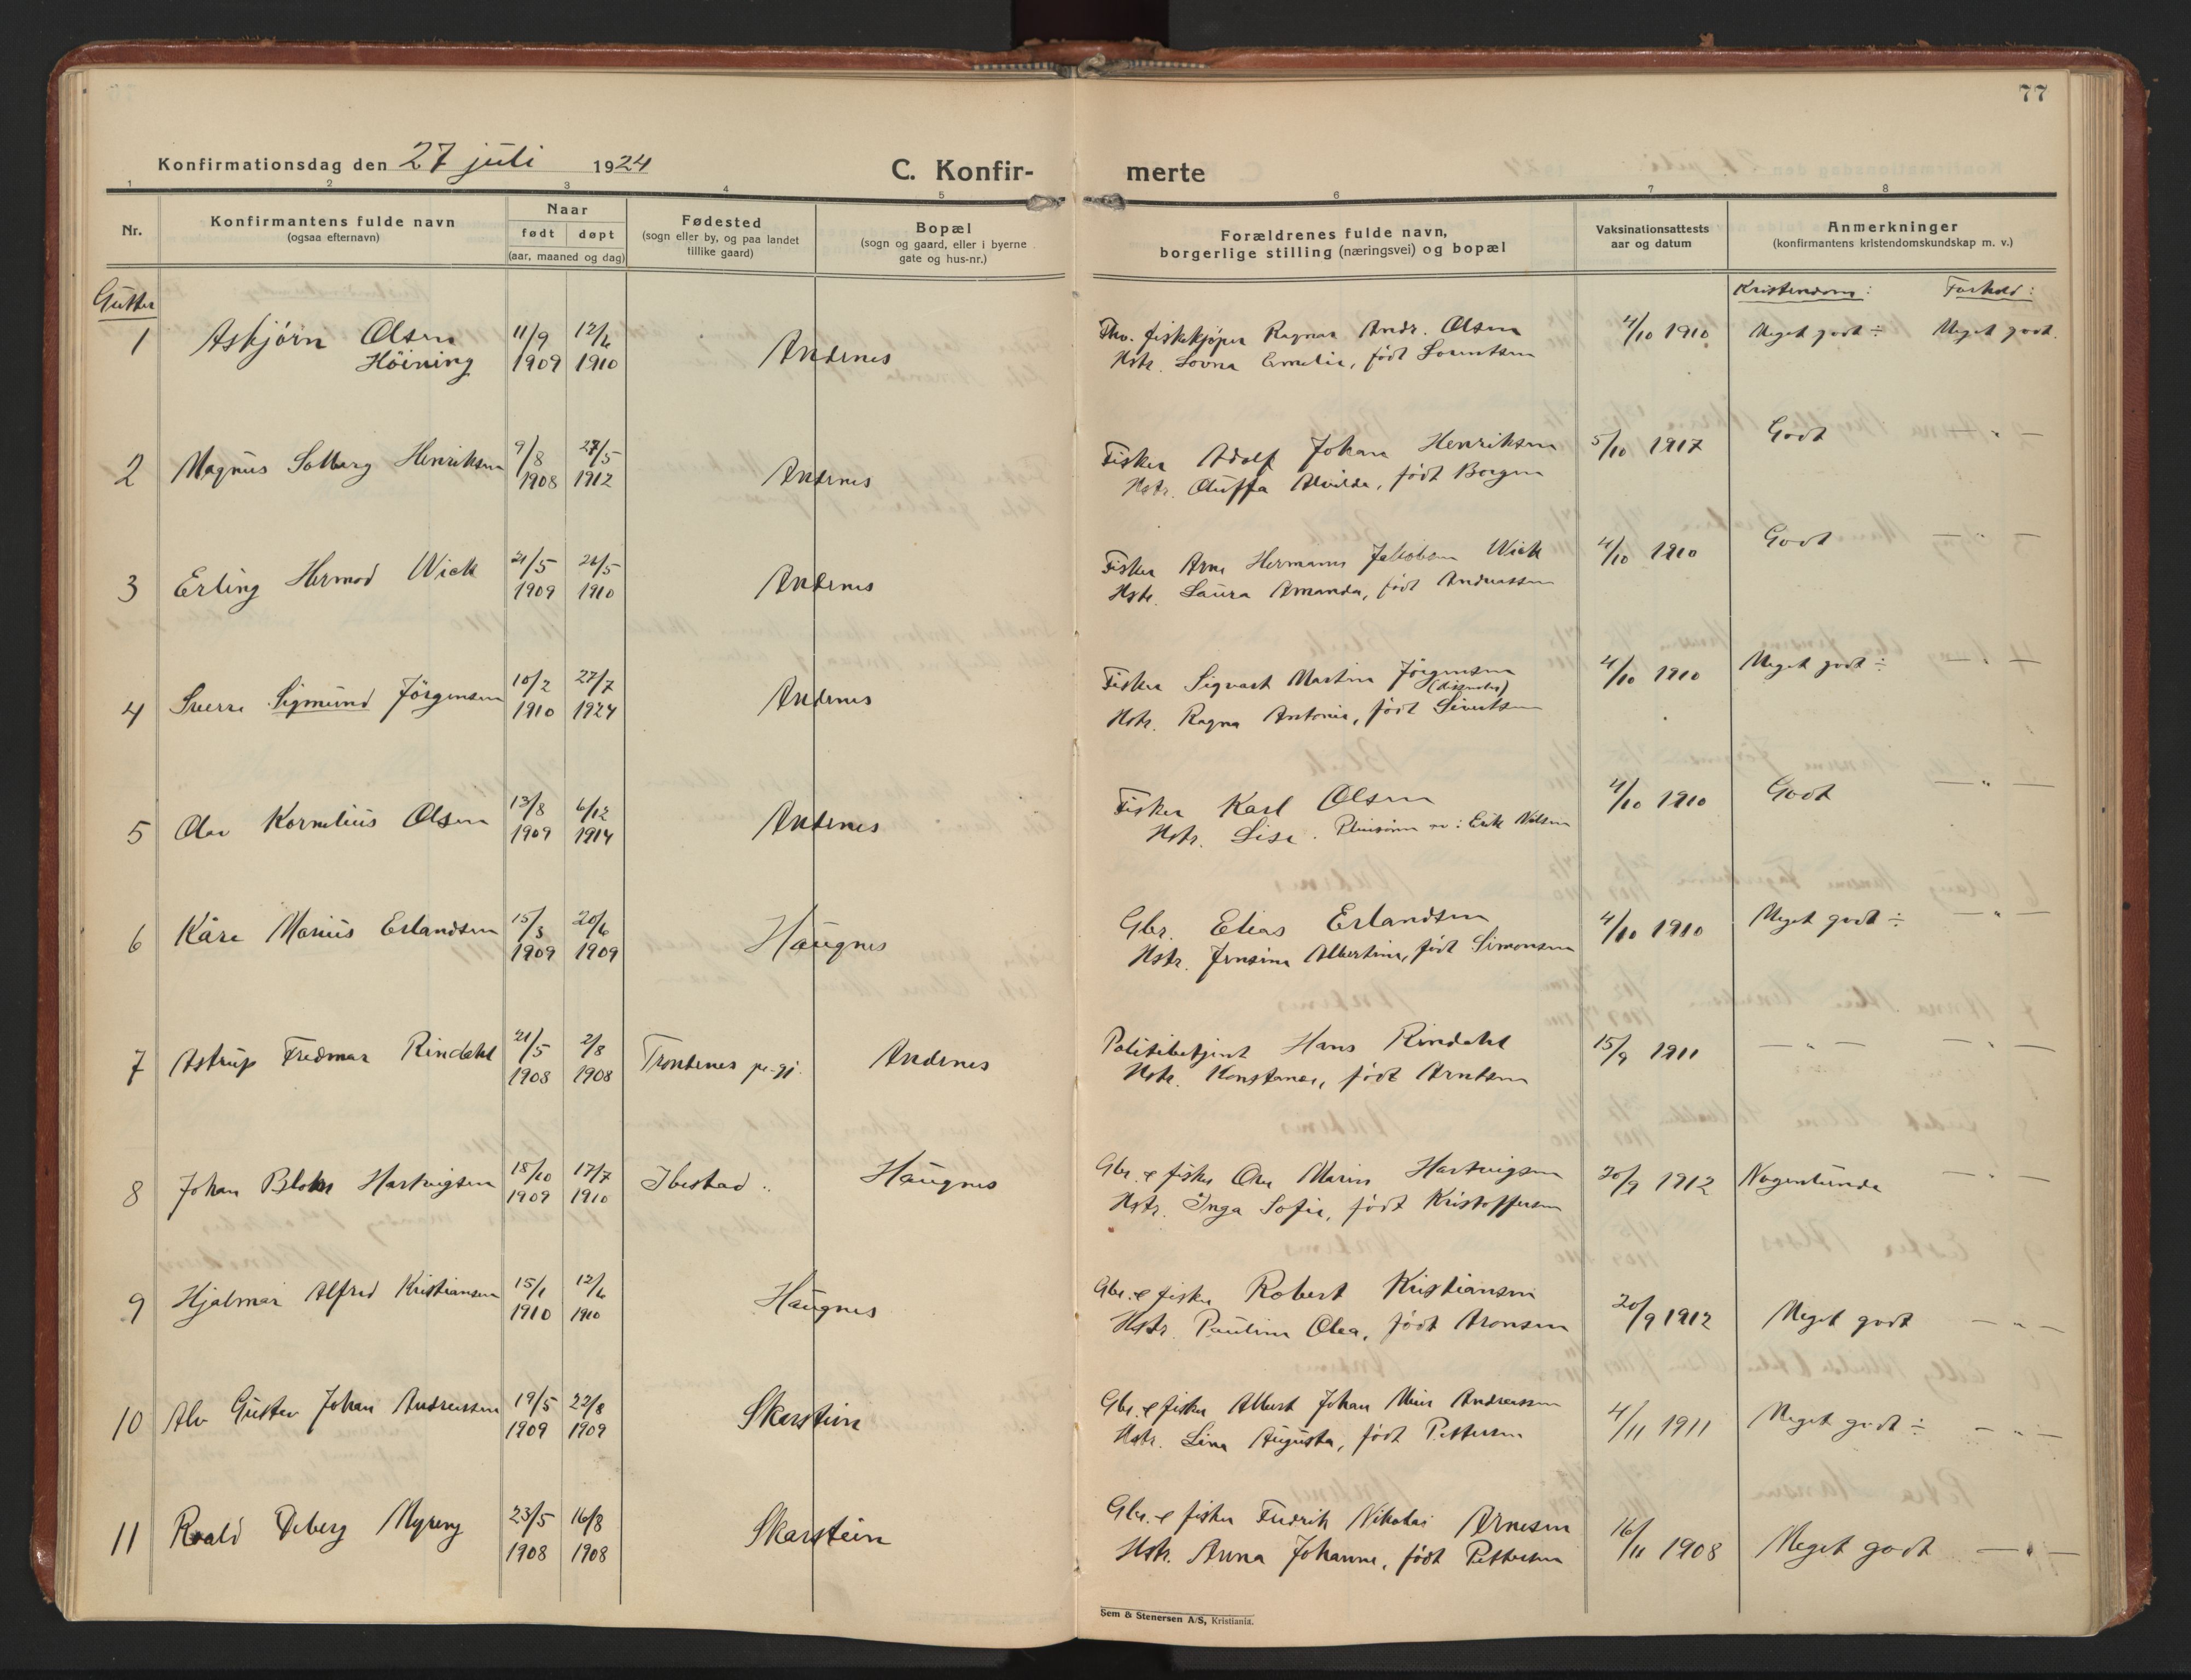 77
Konfirmationsdag den 27 juli 1924
C. Konfir-
merte
1 2 3 4 5 6 7 8
Nr.
Konfirmantens fulde navn
(ogsaa efternavn)
Naar
født døpt
(aar, maaned og dag)
Fødested
(sogn eller by, og paa landet
tillike gaard)
Bopæl
(sogn og gaard, eller i byerne
gate og hus-nr.)
Forældrenes fulde navn,
borgerlige stilling (næringsvei) og bopæl
Vaksinationsattests
aar og datum
Anmerkninger
(konfirmantens kristendomskundskap m. v.)
Gutter
Kristendom: Forhold:
1 Asbjörn Olsen 11/9 12/6 Andenes fiskekjøper Ragnar Andr. Olsen 4/10 1910 Meget godt ÷ Meget godt.
Höining 1909 1910 Hstr. Lovna Emelie, født Lorentsen
2 Magnus Solberg Henriksen 9/8 27/5 Andenes Fisker Adolf Johan Henriksen 5/10 1917 Godt — " —
1908 1912 Hstr. Oluffa Alvilda, født Borgen
3 Erling Hermod Wick 21/5 21/5 Andenes Fisker Arne Hermann Jakobsen Wick 4/10 1910 Godt — " —
1909 1910 Hstr. Laura Amanda, født Andreassen
4 Sverre Sigmund Jörgensen 10/2 27/7 Andenes Fisker Sigvart Martin Jörgensen 4/10 1910 Meget godt ÷ — " —
(dissenter)
1910 1924 Hstr. Ragna Antonie, født Sivertsen
5 Olav Kornelius Olsen 13/8 6/12 Andenes Fisker Karl Olsen 4/10 1910 Godt — " —
1909 1914 Hstr. Lise. Pleiesönn av: Erik Nilsen
6 Kåre Marius Erlandsen 15/3 20/6 Haugnes Gbr. Elias Erlandsen 4/10 1910 Meget godt ÷ — " —
1909 1909 Hstr. Jensine Albertine, født Simonsen
7 Astrup Fredmar Rindahl 21/5 2/8 Trondenes pr.gj. Andenes Politibetjent Hans Rindahl 15/9 1911 — " — — " —
1908 1908 Hstr. Konstanse, født Arntsen
8 Johan Blokn Hartvigsen 18/10 17/7 Ibestad .. Haugnes Gbr. & fisker Ole Marin Hartvigsen 20/9 1912 Nogenlunde — " —
1909 1910 Hstr. Inga Sofie, født Kristoffersen
9 Hjalmar Alfred Kristiansen 15/1 12/6 Haugnes Gbr. & fisker Robert Kristiansen 20/9 1912 Meget godt — " —
1910 1910 Hstr. Pauline Olea, født Aronsen
10 Alv Gustav Johan Andreassen 19/5 22/8 Skarstein Gbr. & fisker Albert Johan Andreassen 4/11 1911 Meget godt ÷ — " —
1909 1909 Hstr. Lina Augusta, født Pettersen
11 Roald Deberg Myreng 23/5 16/8 Skarstein Gbr. & fisker Fredrik Nikolai Arnesen 16/11 1908 Meget godt — " —
1908 1908 Hstr. Anna Johanne, født Pettersen
Sem & Stenersen A/S, Kristiania.